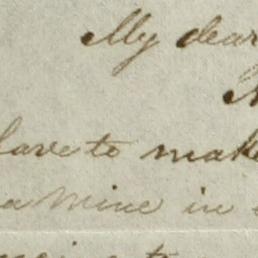 My dear
have to make
a Mine in